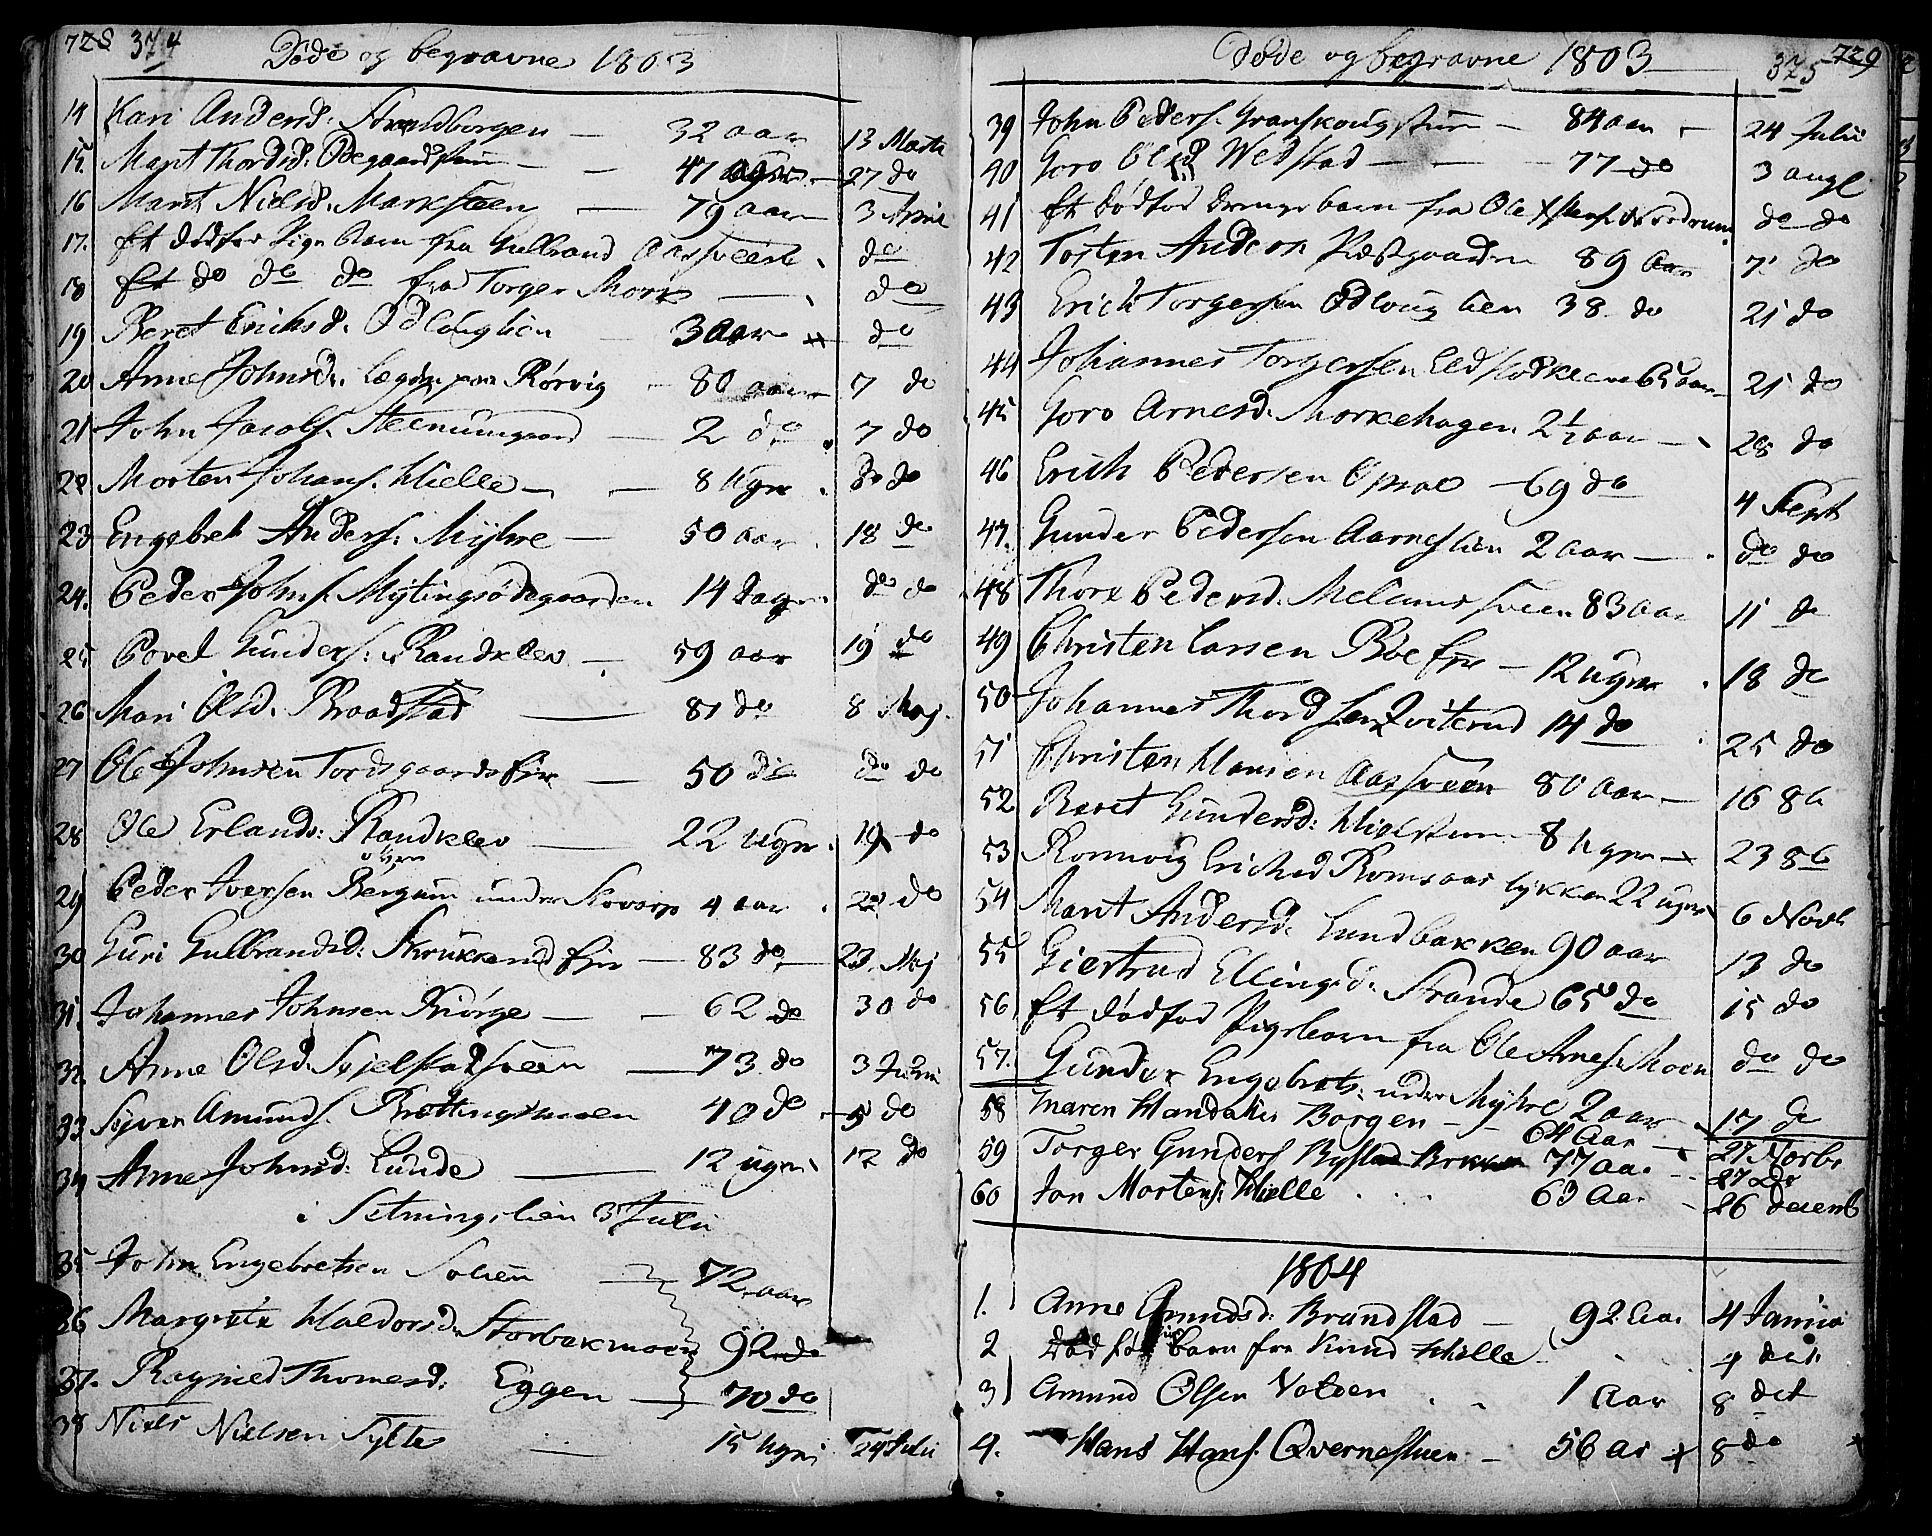 728 374 Døde og begravne 1803
14 Kari Andersd. Strandborgen — 32 aar 13 Marti
15. Marit Thordsd. Ødegaards — 47 — 27 do
16 Marit Nielsd. Marksteen — 79 aar 3 April
17. Et dødfød Pige Barn fra Gulbrand Aasveen do
18 Et do do do fra Torger Mork — do
19 Beret Erichsd. Odlouglien 3 aar do
20 Anne Johnsd. Rørvig 80 aar 7 do
21 John Jacobs. — 2 do 7 do
22 Morten Johans. Hielle — 8 Ugr do do
23 Engebret Anders. Myhre — 50 aar 18 do
24. Peder Johns. Mytingsødegaarden 14 Dage do do
25 Povel Gunders: Randklev — 59 aar 19 do
26 Mari Olsd. Braadstad — 81 do 8 Maj
27 Ole Johnsen Tordsgaards Eie — 50 do do do
28 Ole Erlands: Randklev — 22 Ugr. 19 do
29 Peder Iversen Bergum under 4 aar 22 do
30 Guri Gulbrandsd: Skrukrud Eie — 83 do — 23 Maj
31. Johannes Johnsen Kiørge — 62 do 30 do
32. Anne Olsd. — 73 do 3 Junii
33 Syver Amunds. Brettingsmoen 40 do — 5 do
34 Anne Johnsd: Lunde — 12 ugr. 12 do
i Setningslien 3 Juli
35 John Engebretsen Solien 72 aar
36 Margrete Haldorsd. Storbakmoen 92 do
37. Ragnild Thomesd. Eggen — 70 do
38 Niels Nielsen Sylte — 15 Ugr. 24 Julii
Døde og begravne 1803 — 375 729
39 John Peders. Granskougstuen — 84 aar — 24 Julii
40 Goro Olsd Wedstad — 77 do 3 augl
41 Et dødfød Drenge barn fra Ole Nordrum do do
42 Tosten Anders. Prestgaarden 89 aar 7. do
43 Erich Torgersen Odlouglien 38 do 21 do
44 Johannes Torgersen 65 aar 21 do
45 Goro Arnesd. Morkehagen 2½ aar — 28 do
46 Erich Pedersen Opsal — 69 do 4 Sept
47. Gunder Pedersen Aarneslien 2 aar — do do
48 Thore Pedersd. Melumssveen 83 aar 11 do
49 Christen Larsen Bøe Eie — 12 ugr. 18 do
50 Johannes Thordsen Qviterud 14 do 25 do
51 Christen Hansen Aassveen 80 aar — 16 8b
52 Beret Gundersd: — 8 Ugr — 23 8b
53 Ronnvig Erichsd Romsaas lykken 22 ugr 6 Novb
54 Marit Andersd. Lundbakken 90 aar 13 do
55 Giertrud Ellingsd. Strande 65 do 15 do
56 Et dødfød Pigebarn fra Ole Arnes. Moen do do
57. Gunder Engebrets. under Myhre 2 aar 17 do
58 Maren Borgen — 64 Aar 27 Novbr
59 Torger Gunders 77 aar 27 do
60 Jon Mortens. Hielle 63 Aar 26 decemb
1804
1. Anne Amundsd: Brandstad — 92 Aar 4 Januar
2 Død barn fra Knud Hielle 4 dit.
3 Amund Olsen Volden 1 Aar 8 dit
4. Hans Hans. Qvernestuen — 56 ar 8 do